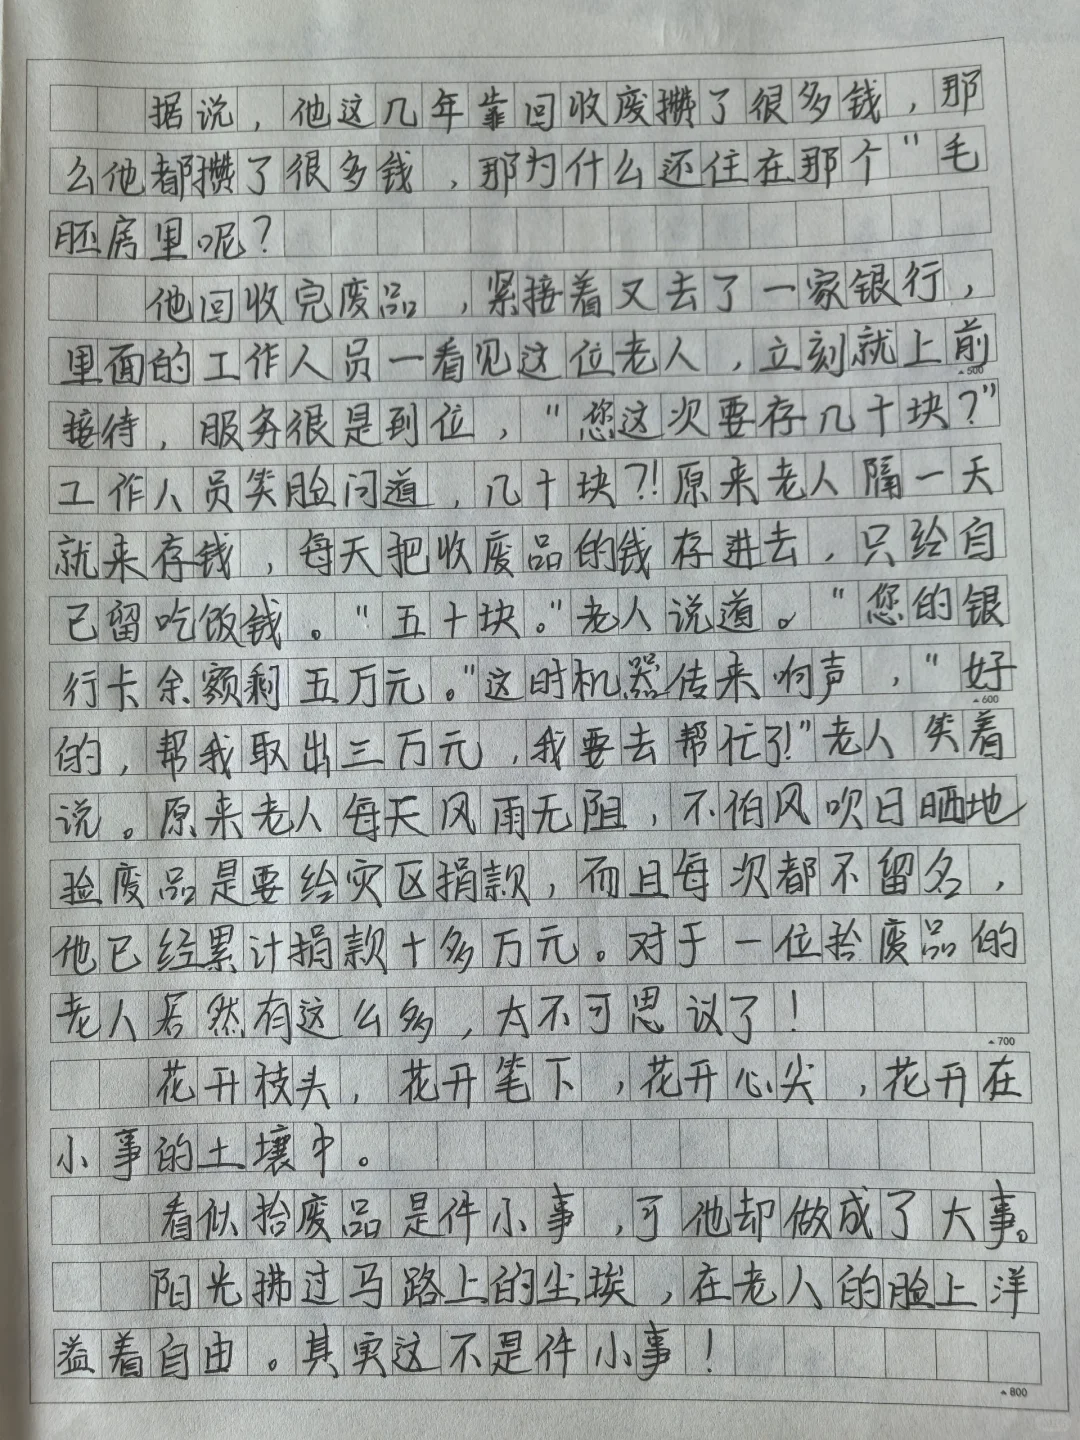 据说，他这几年靠回收废攒了很多钱，那
么他都攒了很多钱，那为什么还住在那个"毛
胚房里呢？
他回收完废品，紧接着又去了一家银行，
里面的工作人员一看见这位老人，立刻就上前
▲500
接待，服务很是到位，"您这次要存几十块？"
工作人员笑脸问道，几十块？！原来老人隔一天
就来存钱，每天把收废品的钱存进去，只给自
己留吃饭钱。"五十块。"老人说道。"您的银
行卡余额剩五万元。"这时机器传来响声，"好
▲600
的，帮我取出三万元，我要去帮忙了！"老人笑着
说。原来老人每天风雨无阻，不怕风吹日晒地
捡废品是要给灾区捐款，而且每次都不留名，
他已经累计捐款十多万元。对于一位拾废品的
老人居然有这么多，太不可思议了！
▲700
花开枝头，花开笔下，花开心尖，花开在
小事的土壤中。
看似拾废品是件小事，可他却做成了大事。
阳光拂过马路上的尘埃，在老人的脸上洋
溢着自由。其实这不是件小事！
▲800